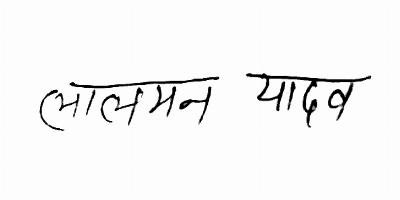 लालमन यादव